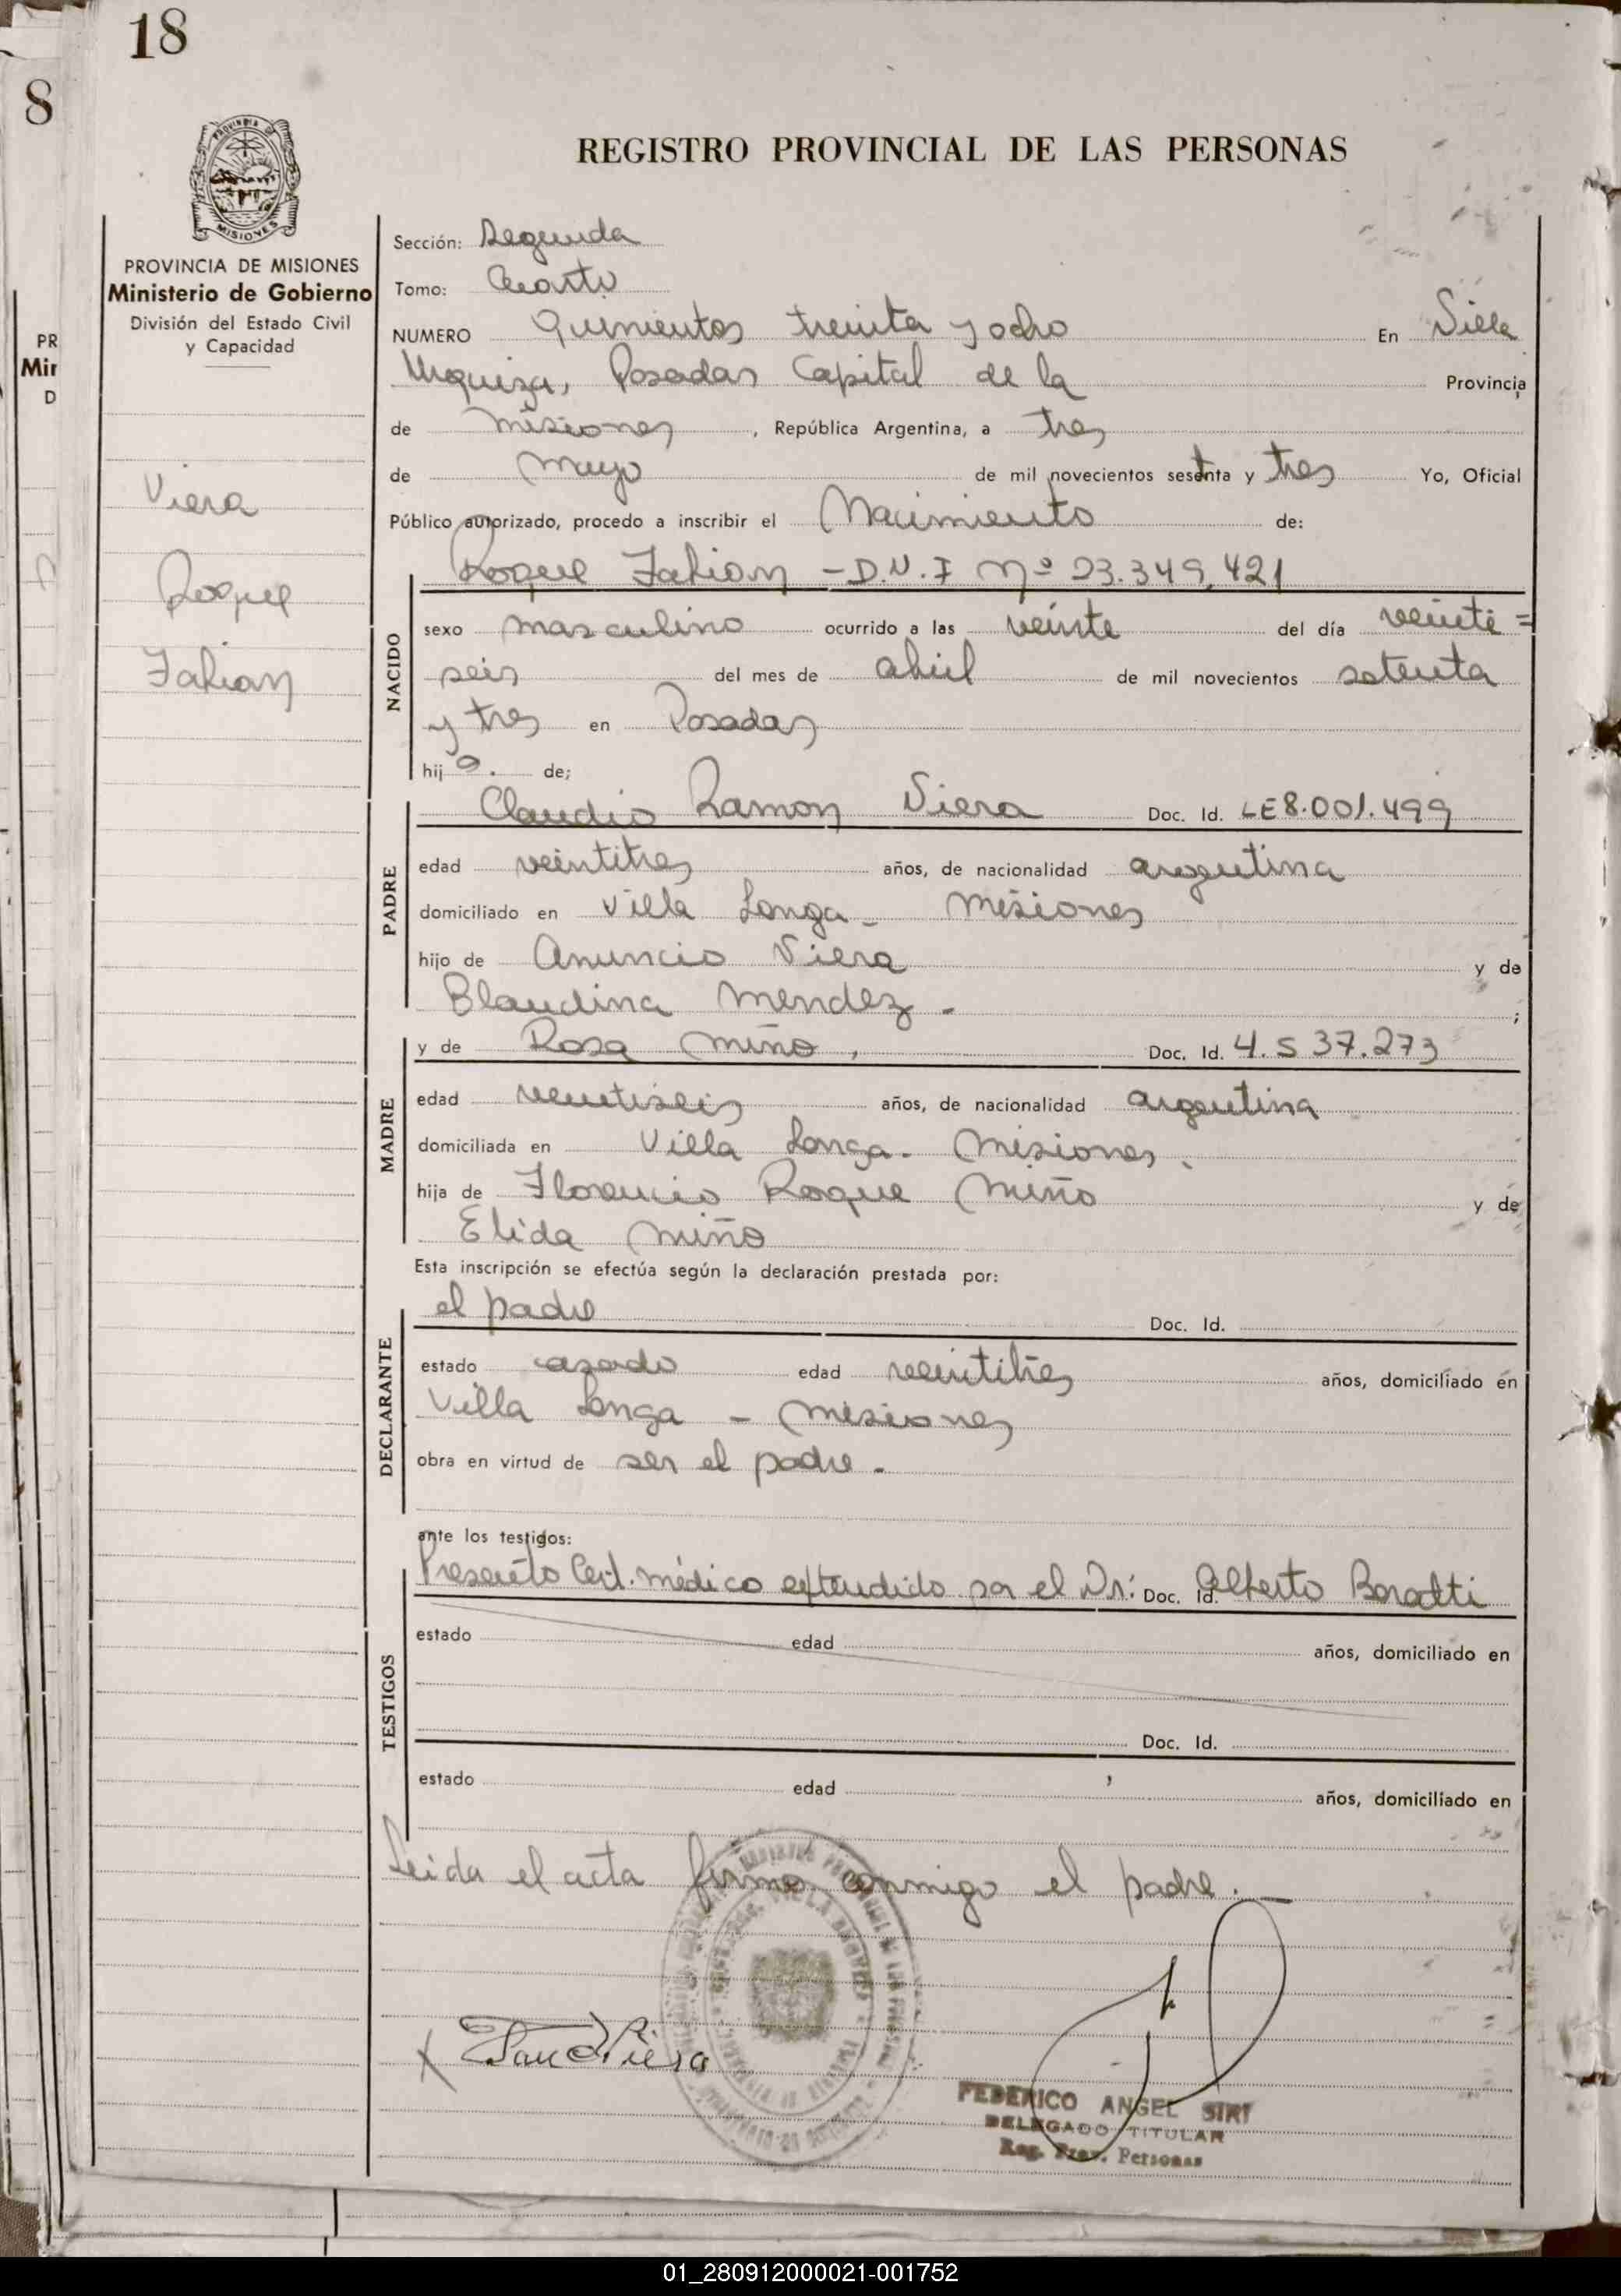 18
8
REGISTRO PROVINCIAL DE LAS PERSONAS
MISIONES
PROVINCIA DE MISIONES
Ministerio de Gobierno
División del Estado Civil
y Capacidad
PR
Mir
D
Viera
Roque
Fabian
Sección: Segunda
Tomo: Cuarto
NUMERO Quinientos treinta y ocho En Villa
Urquiza, Posadas Capital de la Provincia
de Misiones, República Argentina, a tres
de Mayo de mil novecientos setenta y tres Yo, Oficial
Público autorizado, procedo a inscribir el Nacimiento de:
Roque Fabian - D.N.I Nº 23.349.421
NACIDO
sexo masculino ocurrido a las veinte del día veinti=
seis del mes de abril de mil novecientos setenta
y tres en Posadas
hijo. de;
PADRE
Claudio Ramon Viera Doc. Id. LE 8.001.499
edad veintitres años, de nacionalidad argentina
domiciliado en Villa Longa - Misiones
hijo de Anuncio Viera y de
Blaudina Mendez. ;
MADRE
y de Rosa Miño, Doc. Id. 4.537.273
edad veintiseis años, de nacionalidad argentina
domiciliada en Villa Longa. Misiones.
hija de Florencio Roque Miño y de
Elida Miño
Esta inscripción se efectúa según la declaración prestada por:
DECLARANTE
el padre Doc. Id.
estado casado edad veintitres años, domiciliado en
Villa Longa - Misiones
obra en virtud de ser el padre.
ante los testigos:
TESTIGOS
Presento Cert. médico extendido por el Dr: Doc. Id. Alberto Baratti
estado edad años, domiciliado en
Doc. Id.
estado edad años, domiciliado en
Leida el acta firma conmigo el padre.
X Viera
FEDERICO ANGEL SIRI
DELEGADO TITULAR
Reg. Prov. Personas
01_280912000021-001752